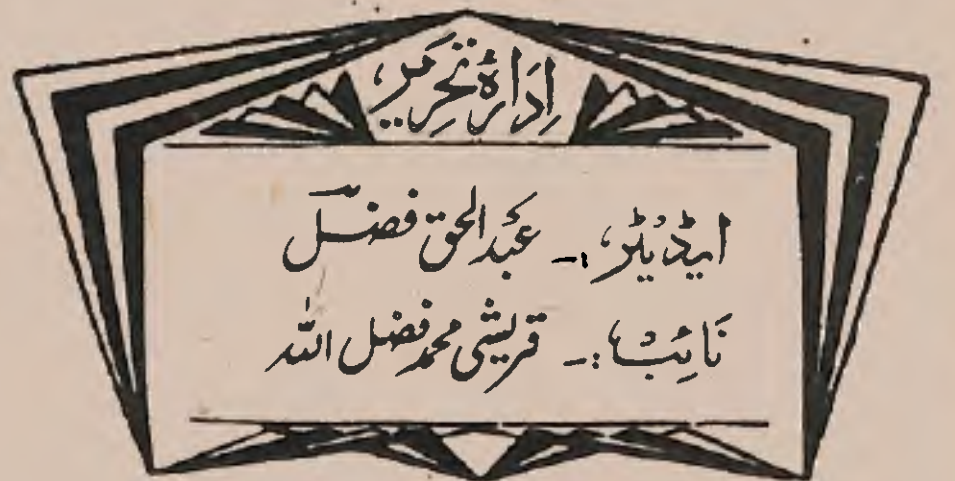 اِدَارَهٔ تَحْرِیْر
ایڈیٹر:۔ عَبدالحق فضلؔ
نَائِبْ:۔ قریشی محمد فضل اللہ